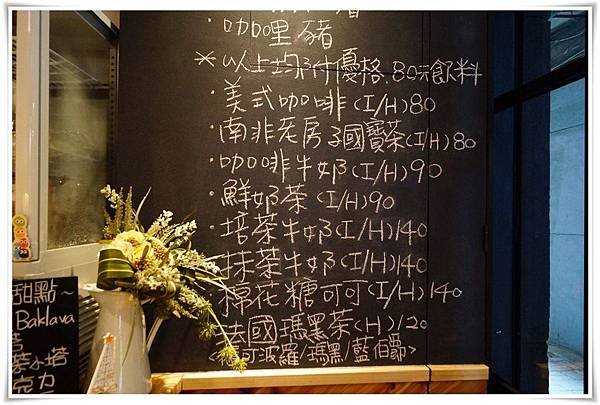 ·咖哩豬
*以上均附優格.80元飲料
·美式咖啡(I/H)80
·南非老房子國寶茶(I/H)80
·咖啡牛奶(I/H)90
·鮮奶茶(I/H)90
·培茶牛奶(I/H)140
·抹茶牛奶(I/H)140
·棉花糖可可(I/H)140
·法國瑪黑茶(H)120
可波羅/瑪黑/藍伯爵>
甜點~
Baklava
小塔
克力